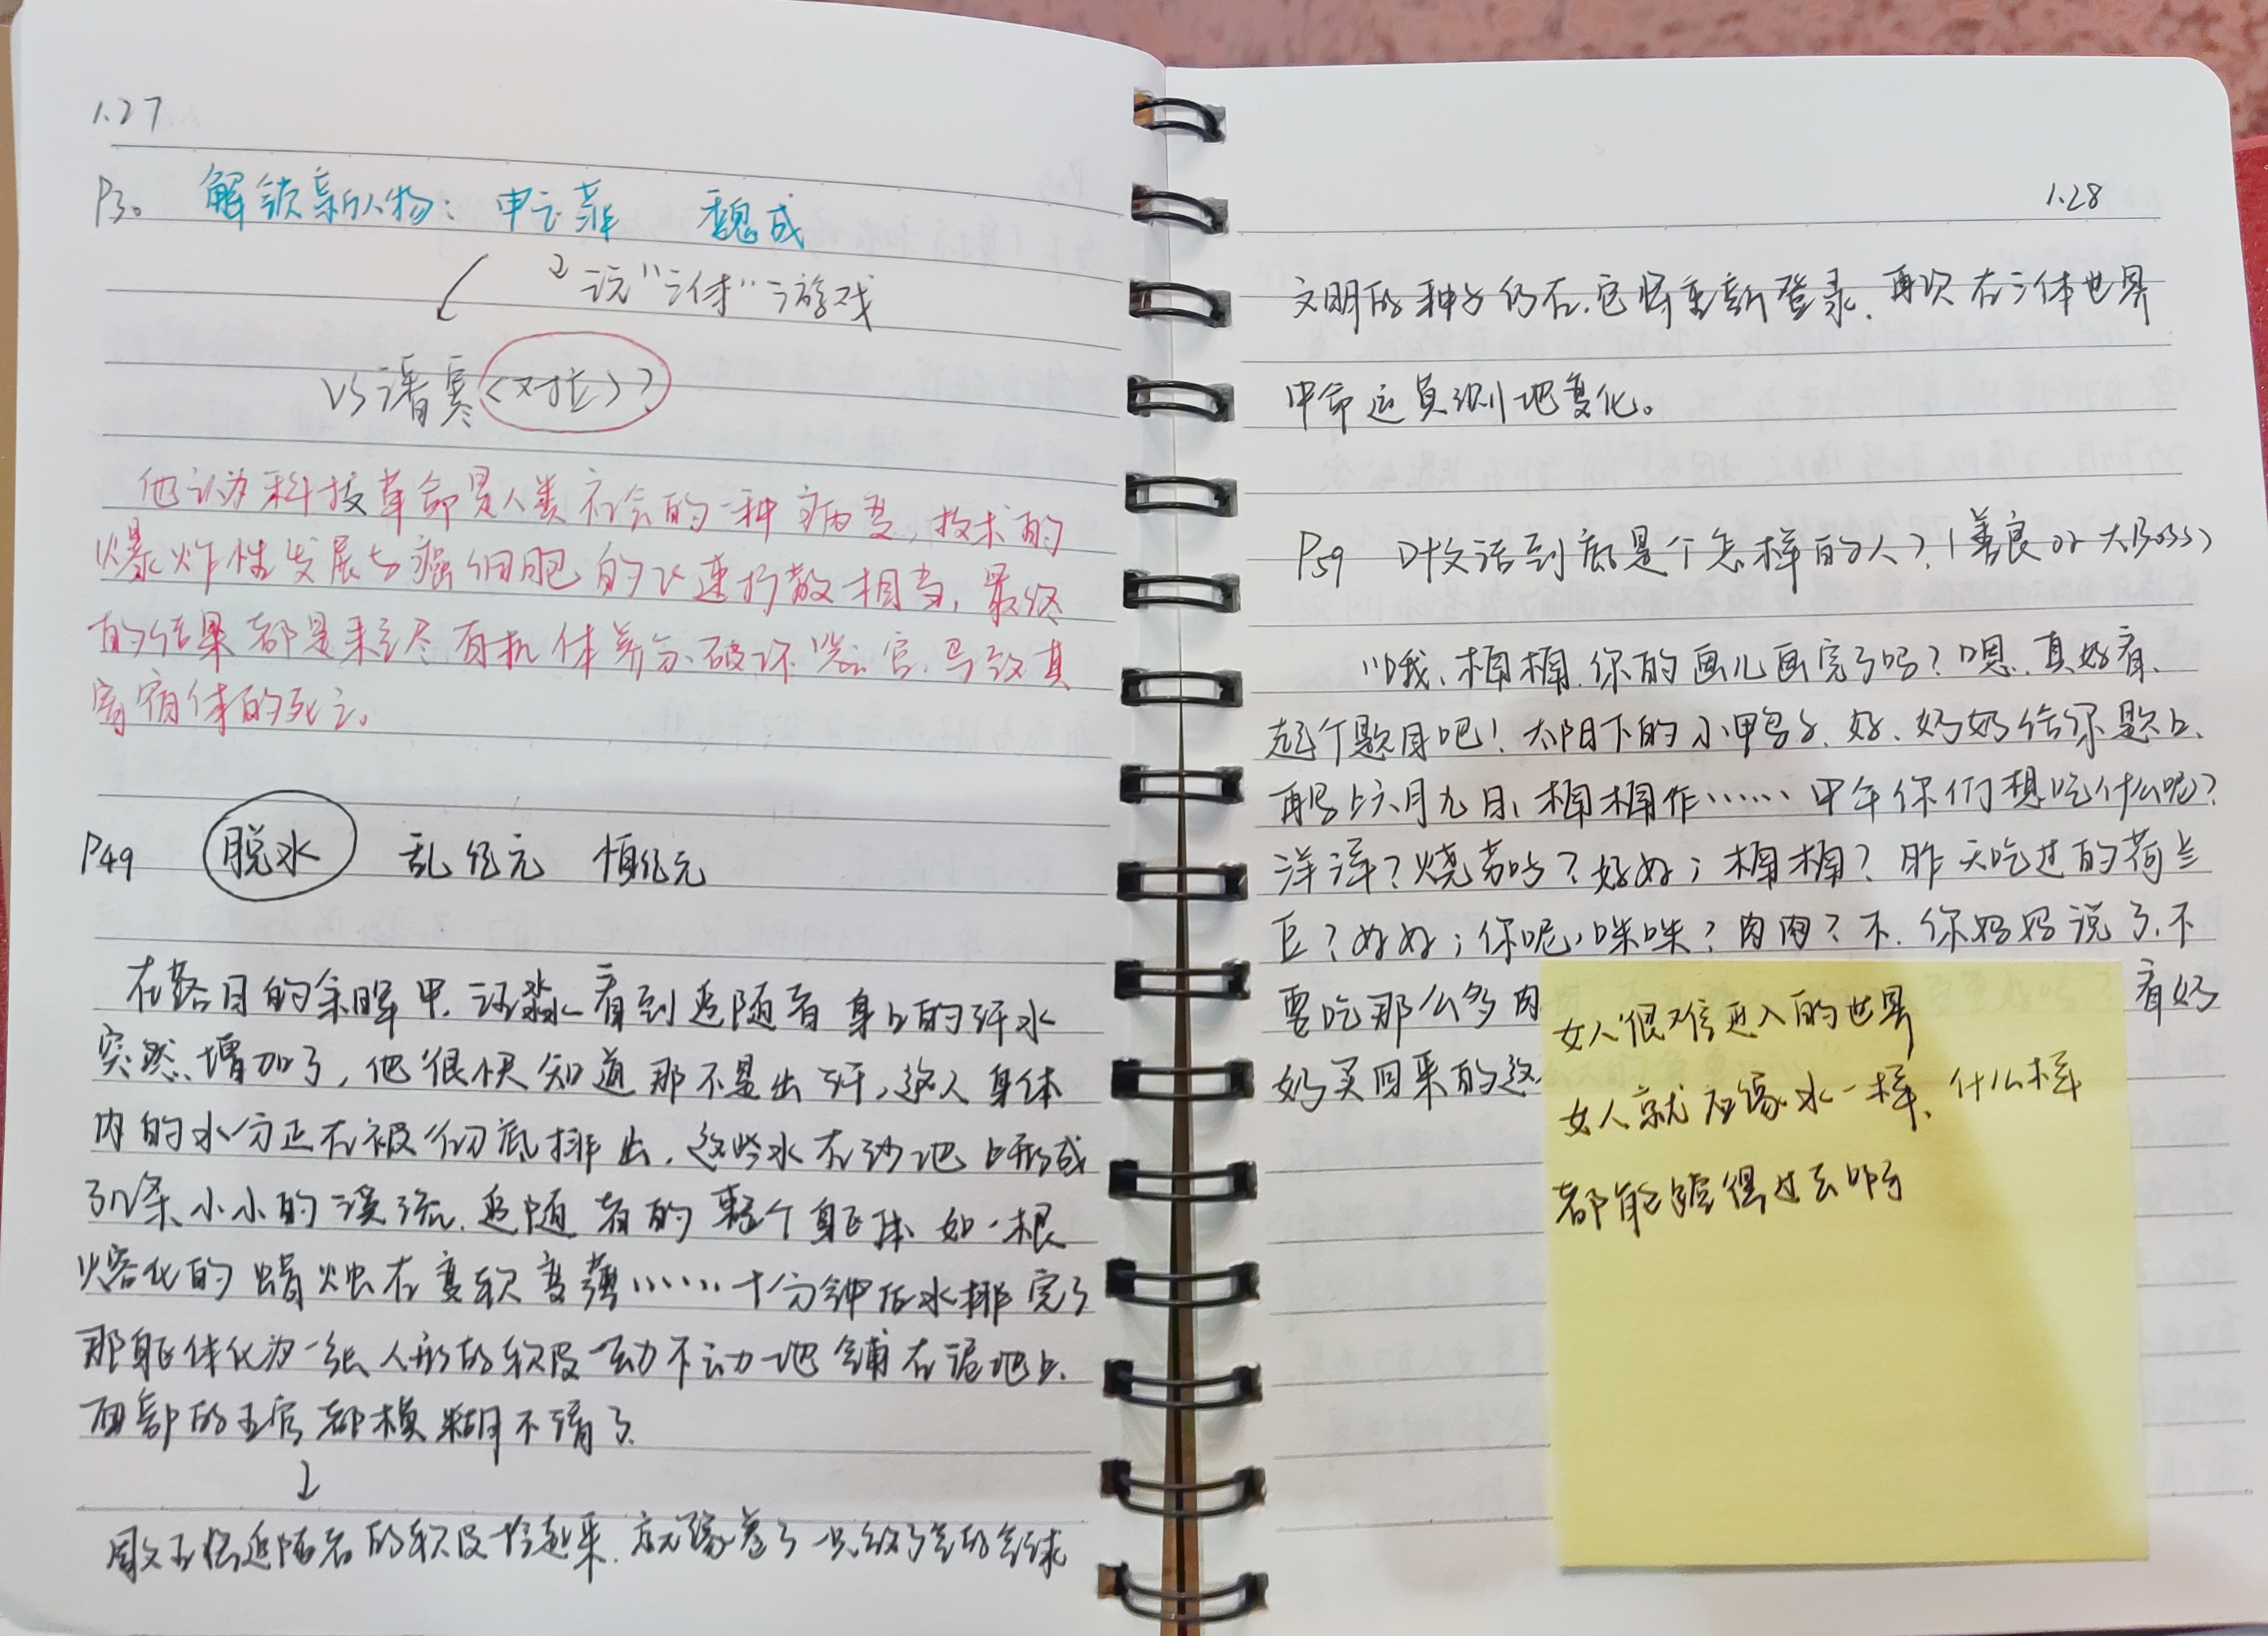 1.27
P30 解锁新人物：申玉菲 魏成
玩“三体”游戏
VS 潘寒<对立>？
他认为科技革命是人类社会的一种病变，技术的
爆炸性发展与癌细胞的飞速扩散相当，最终
的结果都是耗尽有机体养分、破坏器官，导致其
寄宿体的死亡。
P49 脱水 乱纪元 恒纪元
在落日的余晖中，汪淼看到追随者身上的汗水
突然增加了，他很快知道那不是出汗，这人身体
内的水分正在被彻底排出，这些水在沙地上形成
了几条小小的溪流，追随者的整个躯体如一根
熔化的蜡烛在变软变薄……十分钟后水排完了
那躯体化为一张人形的软皮一动不动地铺在泥地上，
面部的五官都模糊不清了
↓
周文王将追随者的软皮拎起来，就像卷了一只放了气的气球
1.28
文明的种子仍在，它将重新登录，再次在三体世界
中命运莫测地变化。
P59 叶文洁到底是个怎样的人？（善良 or 大Boss）
哦，楠楠，你的画儿画完了吗？嗯，真好看，
起个题目吧！太阳下的小鸭子，好，奶奶给你题上，
再写上六月九日，楠楠作……中午你们想吃什么呢？
洋洋？烧茄吗？好好；楠楠？昨天吃过的荷兰
豆？好好；你呢，咪咪？肉肉？不，你妈妈说了，不
要吃那么多肉 看奶
奶买回来的这
女人很难进入的世界
女人就应像水一样，什么样
都能淌得过去啊